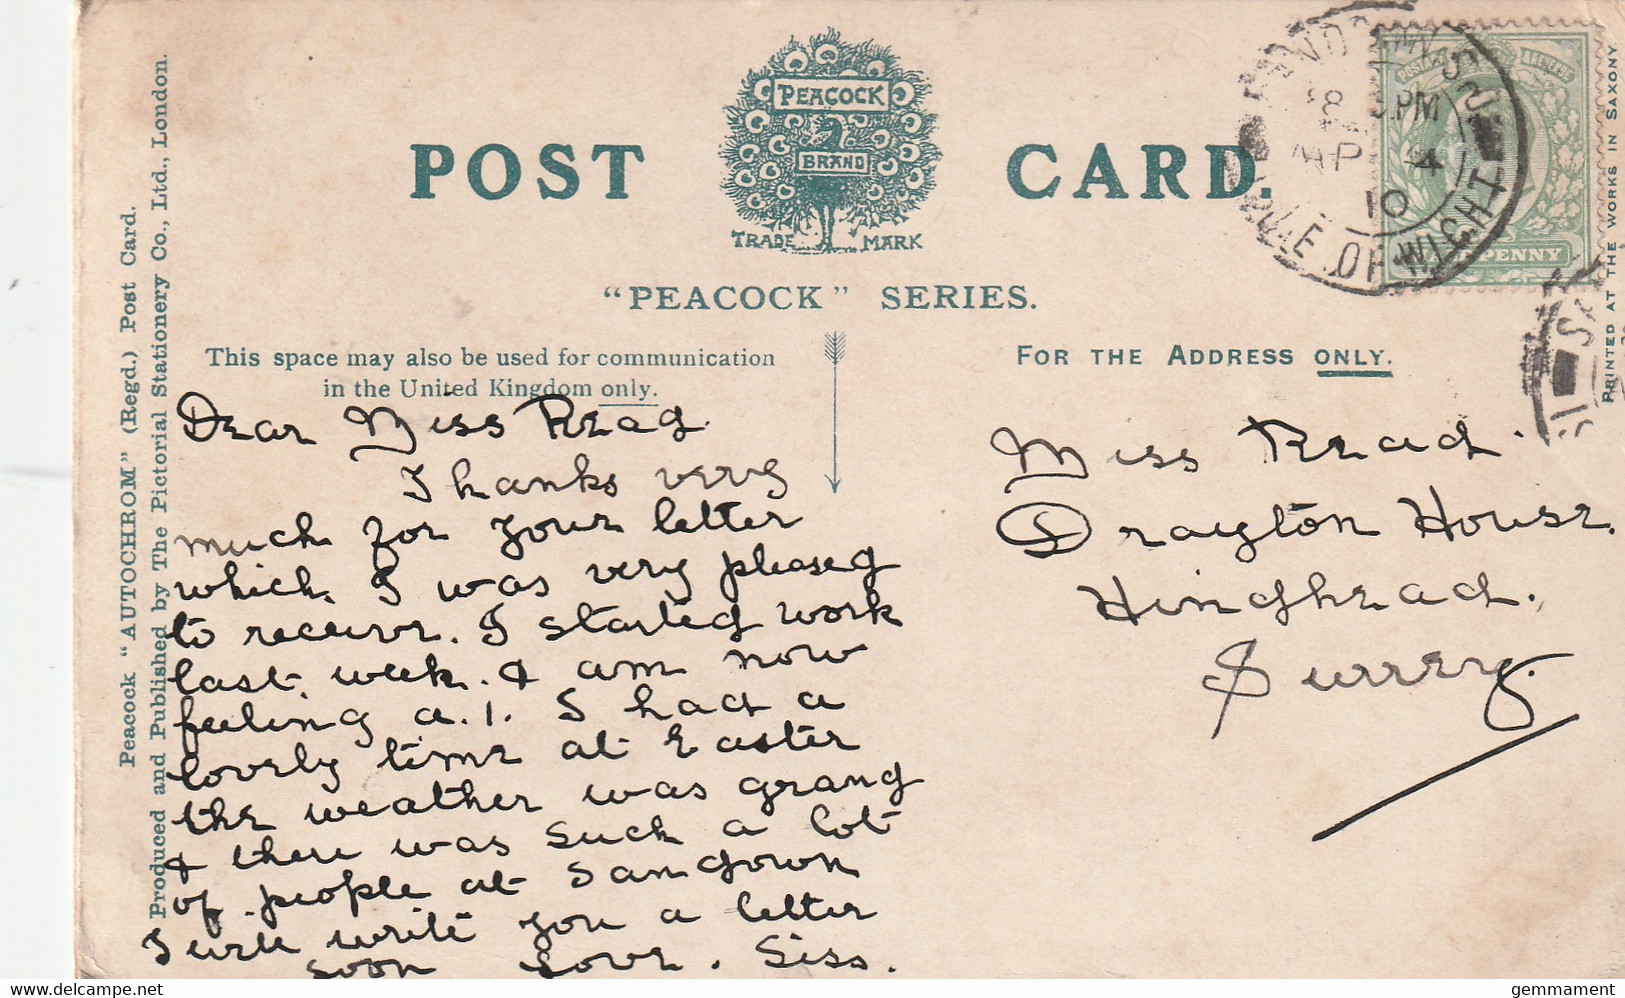 POST CARD.
PEACOCK
BRAND
TRADE MARK
"PEACOCK" SERIES.
This space may also be used for communication
in the United Kingdom only.
FOR THE ADDRESS ONLY.
Peacock "AUTOCHROM" (Regd.) Post Card.
Produced and Published by The Pictorial Stationery Co., Ltd., London.
PRINTED AT THE WORKS IN SAXONY
Dear Miss Read.
Thanks very
much for your letter
which I was very pleased
to receive. I started work
last week. & am now
feeling a.1. I had a
lovely time at Easter
the weather was grand
& there was such a lot
of people at Sandown
I will write you a letter
soon Love. Siss.
Miss Read.
Drayton House.
Hindhead.
Surrey.
PM
AP 4
10
ISLE OF WIGHT
PENNY
gemmament
delcampe.net